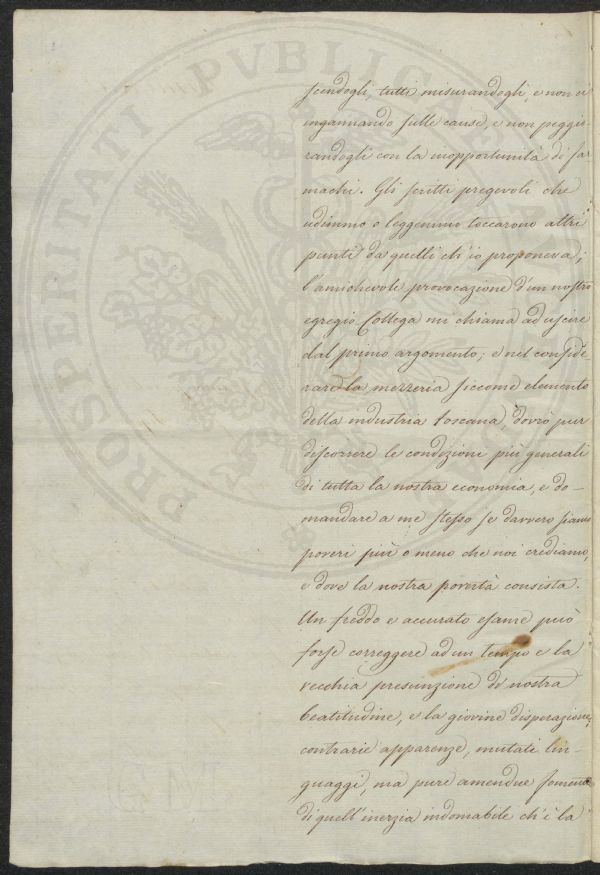 scendogli, tutti misurandogli, e non ci
ingannando sulle cause, e non peggio
randogli con la inopportunità di far
machi. Gli scritti pregevoli che
udimmo o leggemmo toccarono altri
punti da quelli ch'io proponeva;
l'amichevole provocazione d'un nostro
egregio Collega mi chiama ad uscire
dal primo argomento; e nel conside
rare la mezzeria siccome elemento
della industria toscana, dovrò pur
discorrere le condizioni più generali
di tutta la nostra economia, e do-
mandare a me stesso se davvero siamo
poveri più o meno che noi crediamo,
e dove la nostra povertà consista.
Un freddo e accurato esame può
forse correggere ad un tempo e la
vecchia presunzione di nostra
beatitudine, e la giovine disperazione,
contrarie apparenze, mutati lin-
guaggi, ma pure amendue
di quell'inerzia indomabile ch'è la
PROSPERITATI PVBLICAE